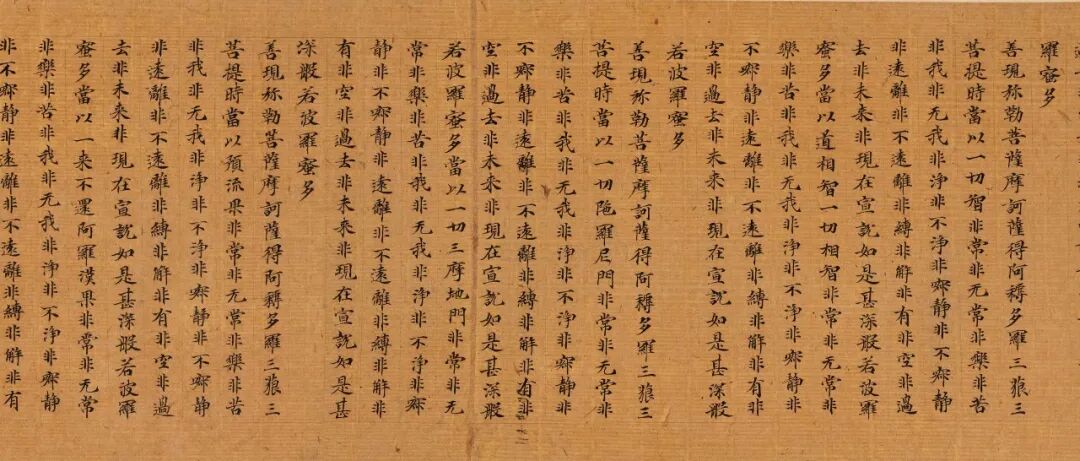 羅蜜多
善現弥勒菩薩摩訶薩得阿耨多羅三藐三
菩提時當以一切智非常非无常非樂非苦
非我非无我非淨非不淨非寂静非不寂静
非遠離非不遠離非縛非解非有非空非過
去非未来非現在宣說如是甚深般若波羅
蜜多當以道相智一切相智非常非无常非
樂非苦非我非无我非淨非不淨非寂静非
不寂静非遠離非不遠離非縛非解非有非
空非過去非未来非現在宣說如是甚深般
若波羅蜜多
善現弥勒菩薩摩訶薩得阿耨多羅三藐三
菩提時當以一切陁羅尼門非常非无常非
樂非苦非我非无我非淨非不淨非寂静非
不寂静非遠離非不遠離非縛非解非有非
空非過去非未来非現在宣說如是甚深般
若波羅蜜多當以一切三摩地門非常非无
常非樂非苦非我非无我非淨非不淨非寂
静非不寂静非遠離非不遠離非縛非解非
有非空非過去非未来非現在宣說如是甚
深般若波羅蜜多
善現弥勒菩薩摩訶薩得阿耨多羅三藐三
菩提時當以預流果非常非无常非樂非苦
非我非无我非淨非不淨非寂静非不寂静
非遠離非不遠離非縛非解非有非空非過
去非未来非現在宣說如是甚深般若波羅
蜜多當以一来不還阿羅漢果非常非无常
非樂非苦非我非无我非淨非不淨非寂静
非不寂静非遠離非不遠離非縛非解非有